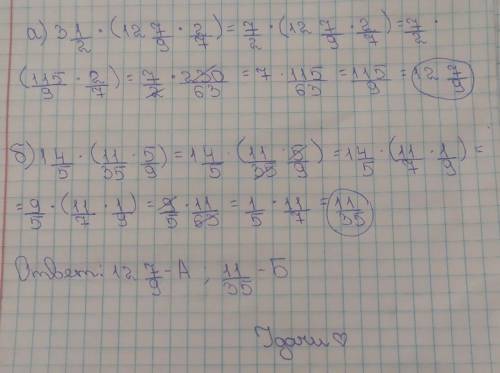 а) 3 1/2 · (12 7/9 · 2/7) = 7/2 · (12 7/9 · 2/7) = 7/2 ·
(115/9 · 2/7) = 7/2 · 230/63 = 7 · 115/63 = 115/9 = 12 7/9
б) 1 4/5 · (11/35 · 5/9) = 1 4/5 · (11/35 · 5/9) = 1 4/5 · (11/7 · 1/9) =
= 9/5 · (11/7 · 1/9) = 9/5 · 11/63 = 1/5 · 11/7 = 11/35
Ответ: 12 7/9 - А ; 11/35 - Б
Удачи ♡